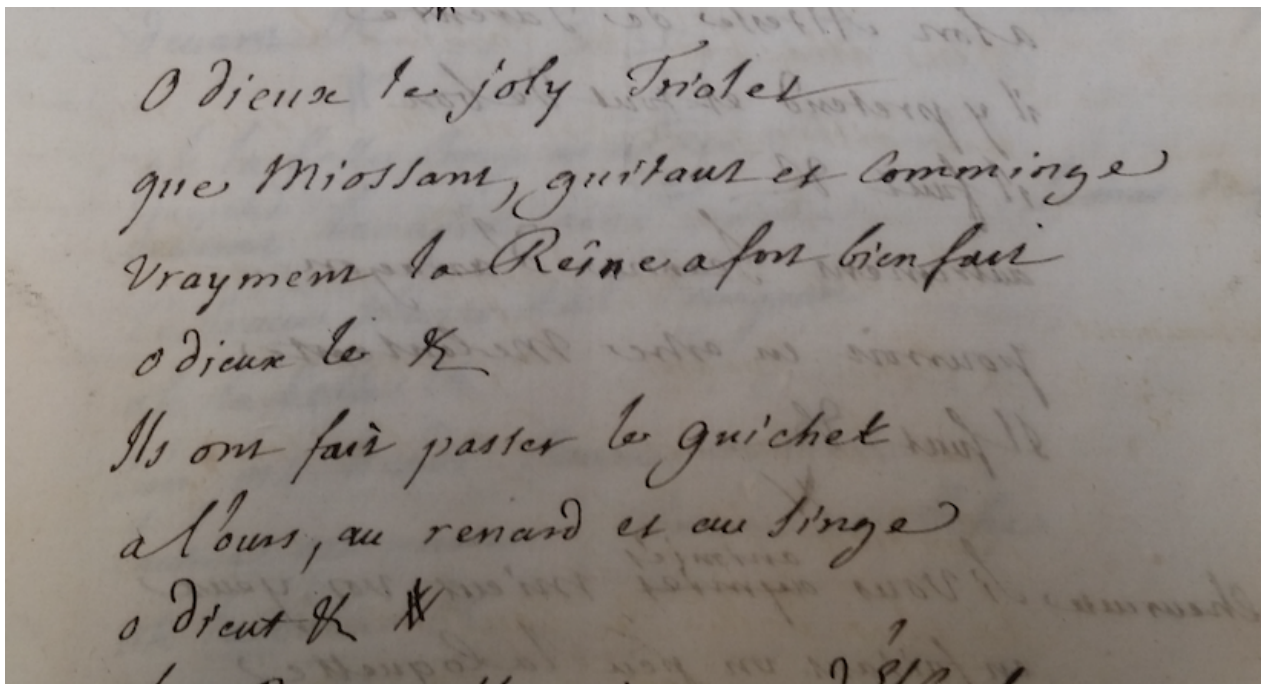 O dieux le joly Triolet
que Miossant, guitaut et Comminge
vrayment la Reîne a fort bien fait
o dieux le &
Ils ont fait passer le guichet
a l'ours, au renard et au singe
o dieut &